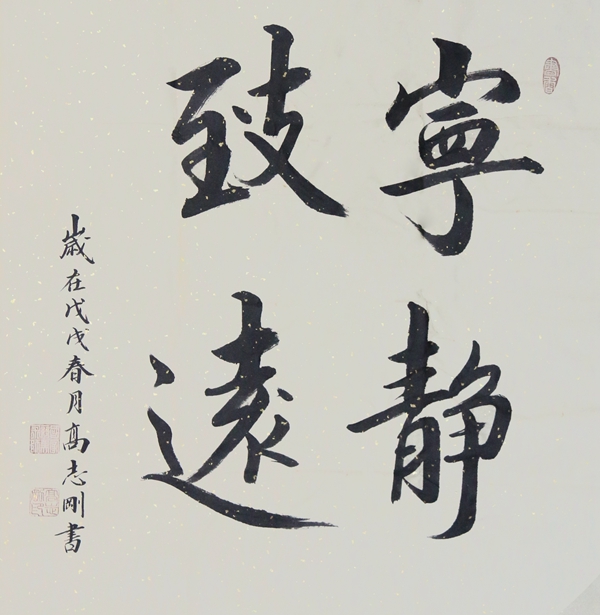 寧靜
致遠
歲在戊戌春月高志剛書